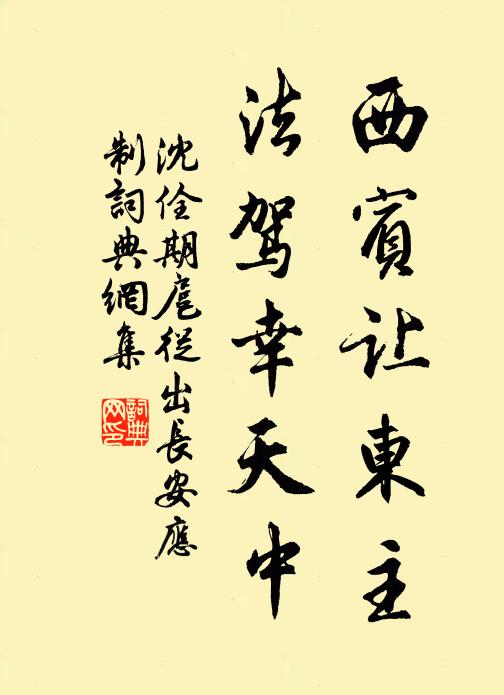 西賓让東主
法驾幸天中
沈佺期扈從出長安應
制詞典網集
詞典
网印